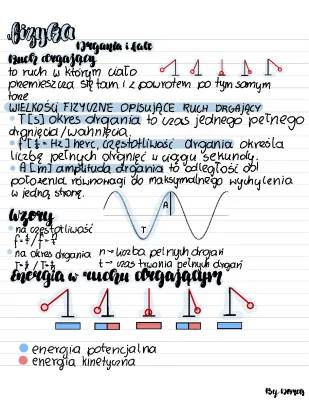 fizyka
Drgania i fale
Ruch drgający
to ruch w którym ciało
przemieszcza się tam i z powrotem po tym samym
torze
WIELKOŚCI FIZYCZNE OPISUJĄCE RUCH DRGAJĄCY
• T[s] okres drgania to czas jednego pełnego
drgnięcia/wahnięcia.
• f[1/s = Hz] herc, częstotliwość drgania określa
liczbę pełnych drgnięć w ciągu sekundy.
• A [m] amplituda drgania to odległość od
położenia równowagi do maksymalnego wychylenia
w jedną stronę.
A
T
Wzory
• na częstotliwość
• na okres drgania
n - liczba pełnych drgań
t - czas trwania pełnych drgań
Energia w ruchu drgającym
energia potencjalna
energia kinetyczna